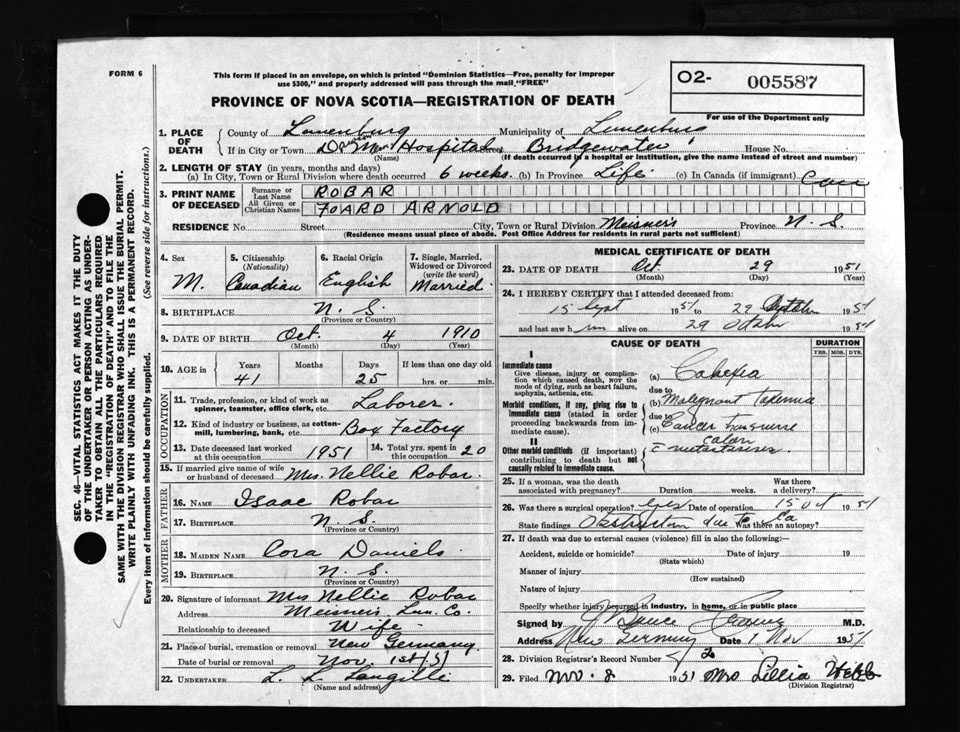 FORM 6
This form if placed in an envelope, on which is printed "Dominion Statistics—Free, penalty for improper
use $300," and properly addressed will pass through the mail "FREE"
PROVINCE OF NOVA SCOTIA—REGISTRATION OF DEATH
O2- 005587
For use of the Department only
SEC. 46—VITAL STATISTICS ACT MAKES IT THE DUTY
OF THE UNDERTAKER OR PERSON ACTING AS UNDER-
TAKER TO OBTAIN ALL THE PARTICULARS REQUIRED
IN THE "REGISTRATION OF DEATH" AND TO FILE THE
SAME WITH THE DIVISION REGISTRAR WHO SHALL ISSUE THE BURIAL PERMIT.
WRITE PLAINLY WITH UNFADING INK. THIS IS A PERMANENT RECORD.
Every item of information should be carefully supplied. (See reverse side for instructions.)
1. PLACE OF DEATH
County of Lunenburg Municipality of Lunenburg
If in City or Town Hospital Street Bridgewater House No.
(Name) (If death occurred in a hospital or institution, give the name instead of street and number)
2. LENGTH OF STAY (in years, months and days)
(a) In City, Town or Rural Division where death occurred 6 weeks. (b) In Province Life. (c) In Canada (if immigrant)
3. PRINT NAME OF DECEASED
Surname or Last Name ROBAR
All Given or Christian Names FOARD ARNOLD
RESIDENCE No. Street City, Town or Rural Division Meisners Province N. S.
(Residence means usual place of abode. Post Office Address for residents in rural parts not sufficient)
4. Sex M.
5. Citizenship (Nationality) Canadian
6. Racial Origin English
7. Single, Married, Widowed or Divorced (write the word) Married.
8. BIRTHPLACE N. S.
(Province or Country)
9. DATE OF BIRTH Oct. 4 1910
(Month) (Day) (Year)
10. AGE in Years 41 Months Days 25 If less than one day old hrs. or min.
OCCUPATION
11. Trade, profession, or kind of work as spinner, teamster, office clerk, etc. Laborer.
12. Kind of industry or business, as cotton-mill, lumbering, bank, etc. Box Factory
13. Date deceased last worked at this occupation 1951
14. Total yrs. spent in this occupation 20
15. If married give name of wife or husband of deceased Mrs. Nellie Robar
FATHER
16. NAME Isaac Robar
17. BIRTHPLACE N. S.
(Province or Country)
MOTHER
18. MAIDEN NAME Cora Daniels.
19. BIRTHPLACE N. S.
(Province or Country)
20. Signature of informant Mrs Nellie Robar
Address Meisners Lun. Co.
Relationship to deceased Wife.
21. Place of burial, cremation or removal New Germany
Date of burial or removal Nov. 1st/51
22. UNDERTAKER L. L. Langille
(Name and address)
MEDICAL CERTIFICATE OF DEATH
23. DATE OF DEATH Oct 29 1951
(Month) (Day) (Year)
24. I HEREBY CERTIFY that I attended deceased from:
15 Sept 1951 to 29 1951
and last saw him alive on 29 1951
CAUSE OF DEATH DURATION
YRS. MOS. DYS.
I
Immediate cause
Give disease, injury or complication which caused death, NOT the mode of dying, such as heart failure, asphyxia, asthenia, etc.
(a)
due to
Morbid conditions, if any, giving rise to immediate cause (stated in order proceeding backwards from immediate cause).
(b) Malignant
due to
(c) Cancer
II
Other morbid conditions (if important) contributing to death but not causally related to immediate cause.
25. If a woman, was the death associated with pregnancy? Duration weeks. Was there a delivery?
26. Was there a surgical operation? yes Date of operation 15 Oct 1951
State findings Obstruction due to Ca Was there an autopsy?
27. If death was due to external causes (violence) fill in also the following:—
Accident, suicide or homicide? Date of injury 19
(State which)
Manner of injury
(How sustained)
Nature of injury
Specify whether injury occurred in Industry, in home, or in public place
Signed by M.D.
Address New Germany Date 1 Nov 1951
28. Division Registrar's Record Number
29. Filed Nov. 8 1951 Mrs Lillia Webb
(Division Registrar)